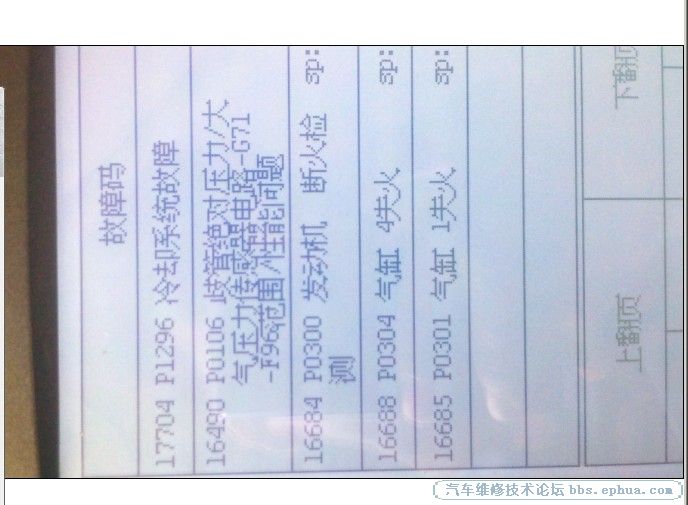 故障码
17704 P1296 冷却系统故障
16490 P0106 歧管绝对压力/大
气压力传感器电路-G71
-F96范围/性能问题
16684 P0300 发动机 断火检 sp:
测
16688 P0304 气缸 4失火 sp:
16685 P0301 气缸 1失火 sp:
上翻页 下翻页
汽车维修技术论坛 bbs.ephua.com